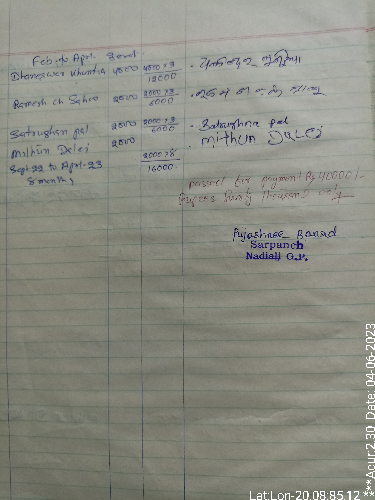 Feb. to Apri.
Dhaneswar Khuntia 4000 4000 × 3
12000
Ramesh ch Sahoo 2000 2000 × 3
6000
Satrughan pal 2000 2000 × 3
6000
Satrughna pal
Mithun Dalei 2000
MITHUN DALEI
Sept-22 to April-23 2000 × 8
16000
8 months
passed for payment Rs 40000/-
Rupees Forty thousand only
Pujashree
Sarpanch
Nadiali G.P.
Lat:Lon-20.08:85.12 ***Acur:2.30 Date: 04-06-2023